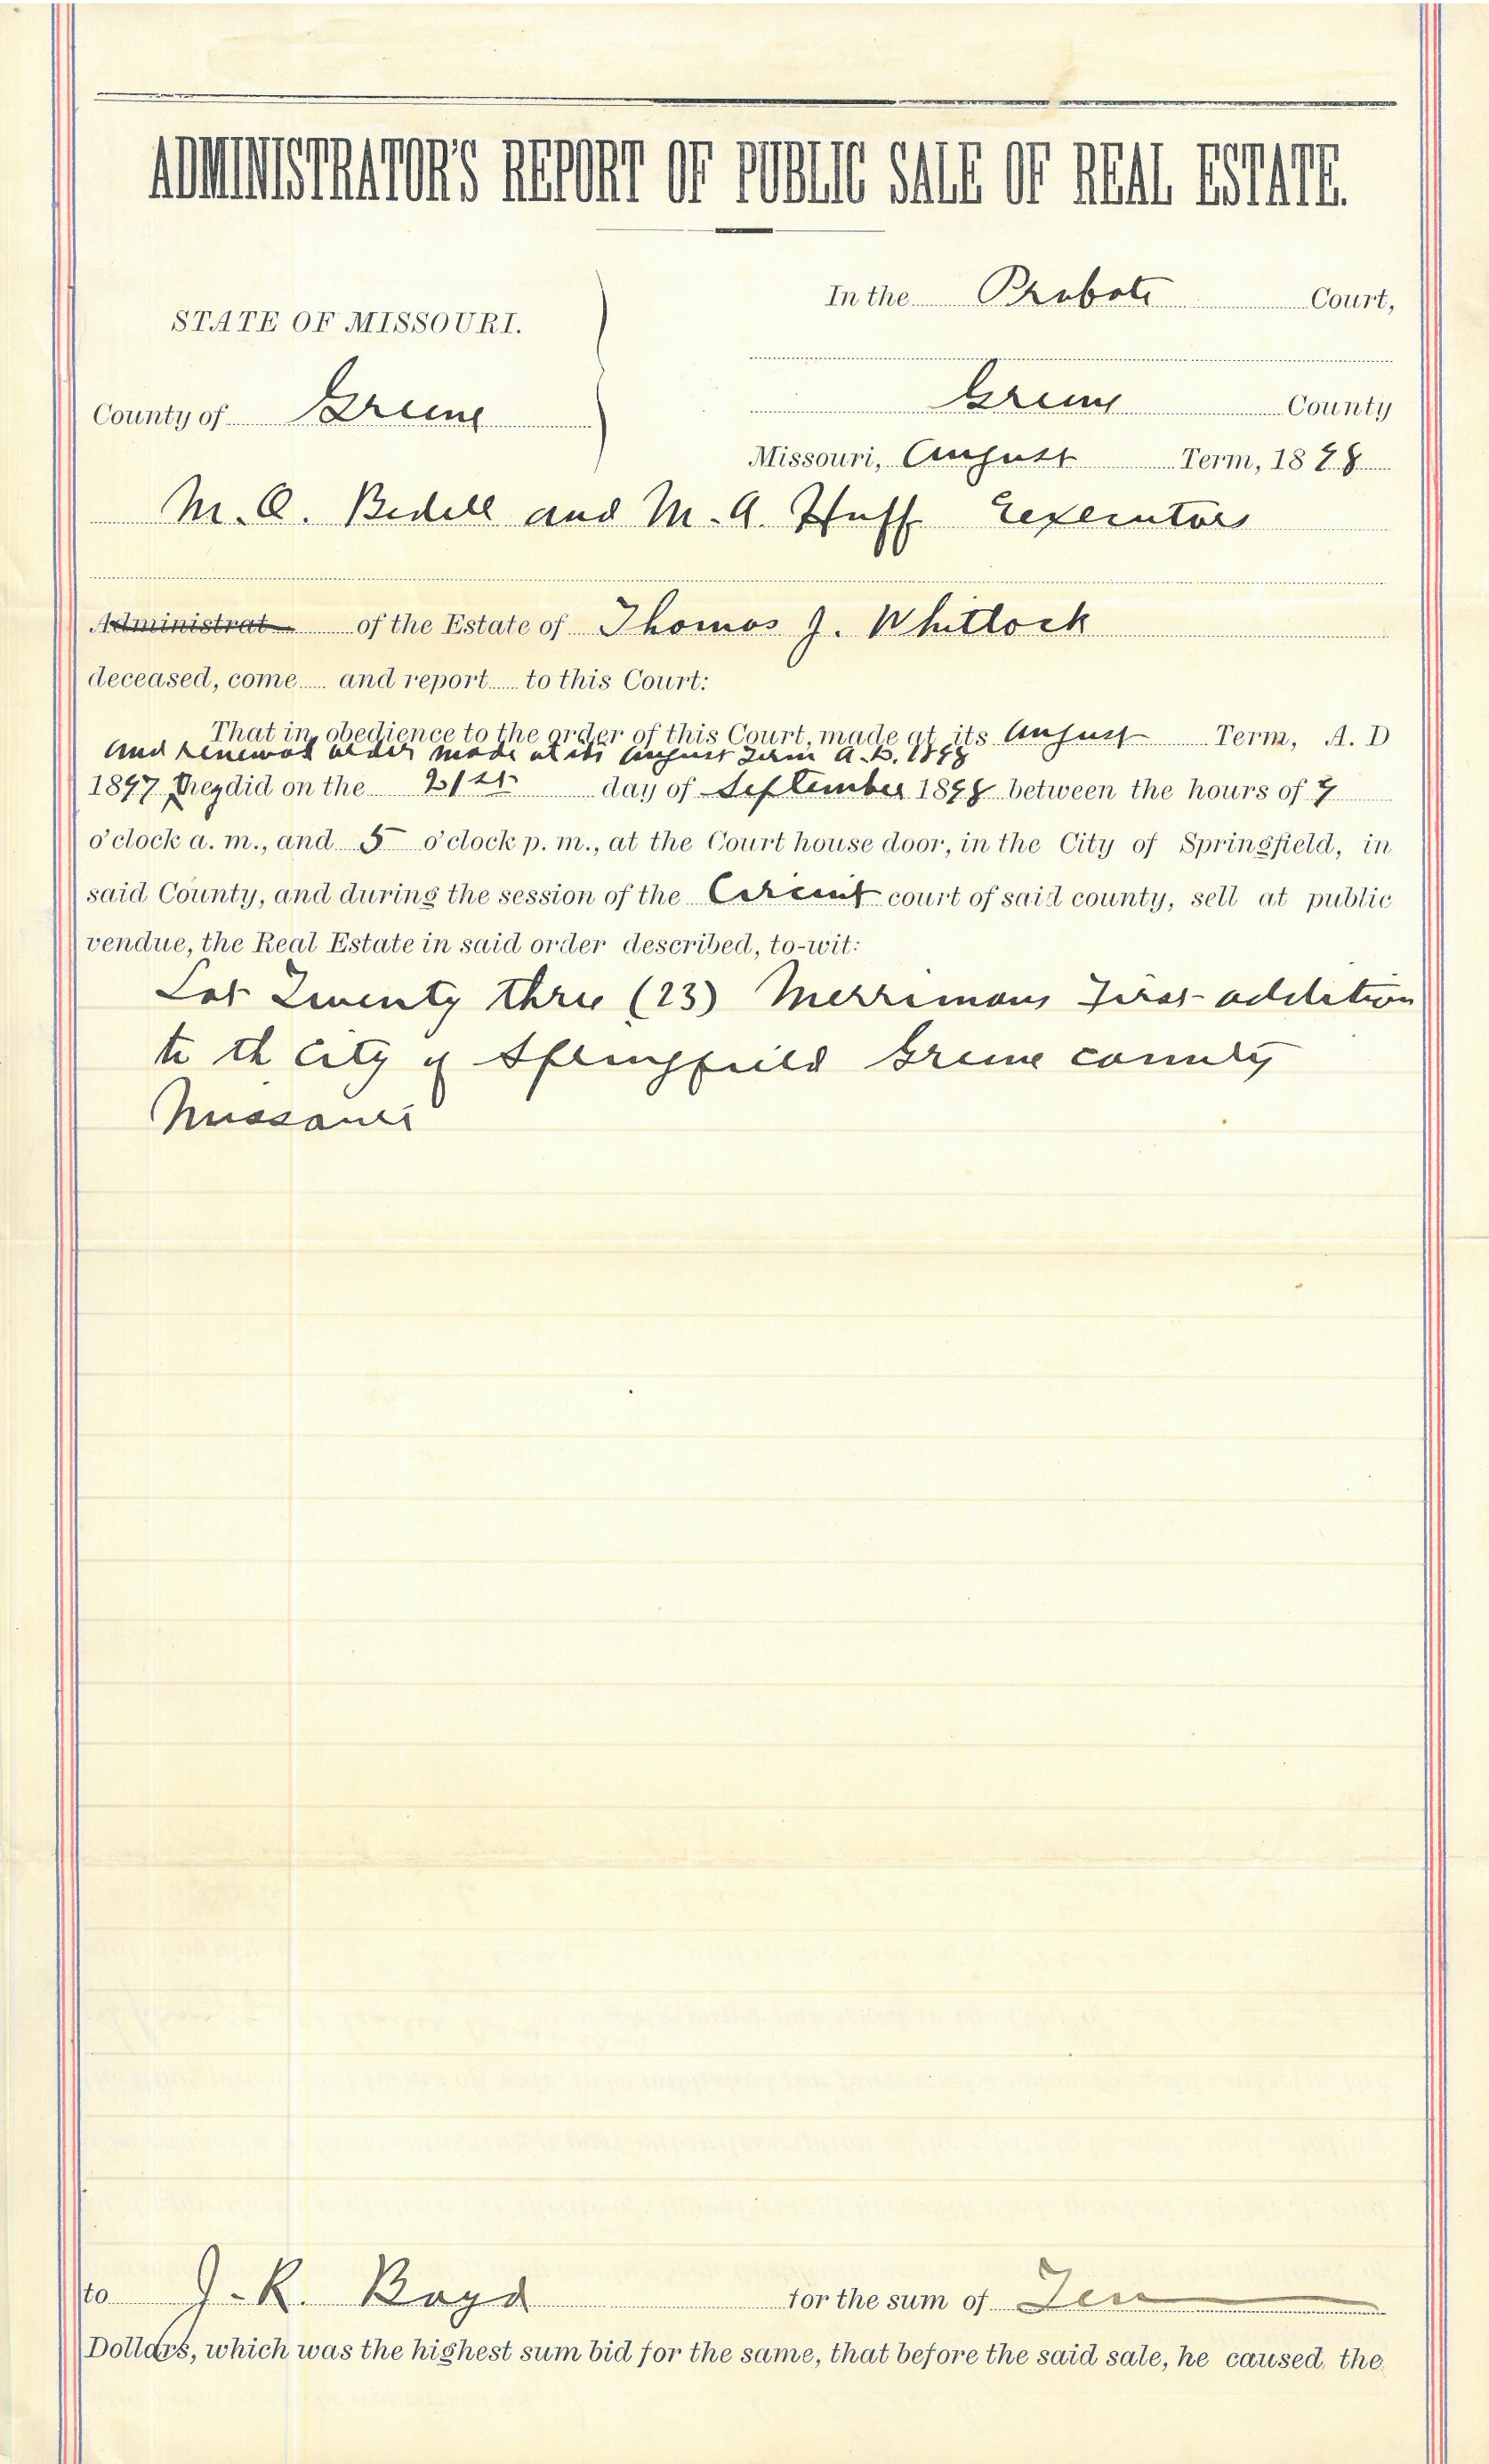 ADMINISTRATOR'S REPORT OF PUBLIC SALE OF REAL ESTATE.
STATE OF MISSOURI.
County of Greene
In the Probate Court,
Greene County
Missouri, August Term, 1898
M. A. Bedell and M. A. Huff Executors
Administrat of the Estate of Thomas J. Whitlock
deceased, come and report to this Court:
That in obedience to the order of this Court, made at its August Term, A. D
and renewal order made at its August Term A.D. 1898
1897 they did on the 21st day of September 1898 between the hours of 9
o'clock a. m., and 5 o'clock p. m., at the Court house door, in the City of Springfield, in
said County, and during the session of the Circuit court of said county, sell at public
vendue, the Real Estate in said order described, to-wit:
Lot Twenty three (23) Merrimans First addition
to th City of Springfield Greene County
Missouri
to J. R. Boyd for the sum of Ten
Dollars, which was the highest sum bid for the same, that before the said sale, he caused the